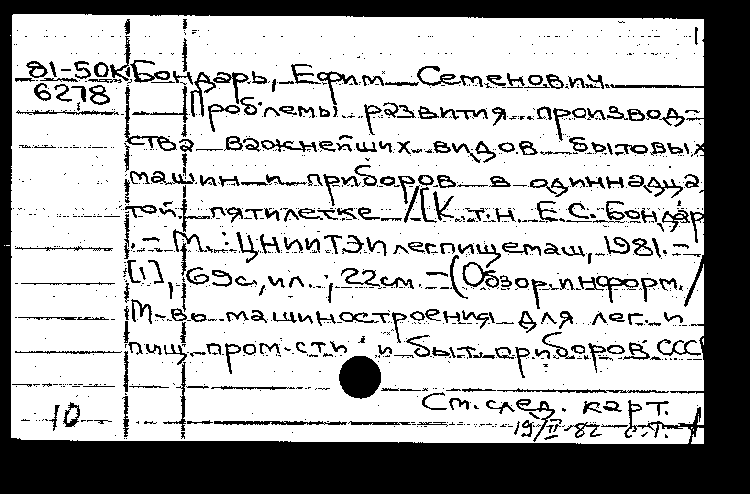 1.
81-50К Бондарь, Ефим Семенович
6278
Проблемы развития производ-
ства важнейших видов бытовых
машин и приборов в одиннадца
той пятилетке /[К.т.н. Е.С. Бондар
.- М. : ЦНИИТЭИлегпищемаш, 1981. -
[1], 69с., ил. ; 22см. - (Обзор. информ. /
М-во машиностроения для лег. и
пищ. пром-сти и быт. приборов СССР
См. след. карт.
10
19/II-82 с.т.